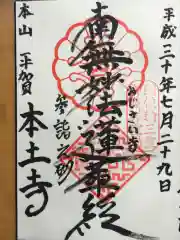 平成三十年七月二十九日
南無妙法蓮華経
あじさい寺
参詣之砌
本山 平賀 本土寺